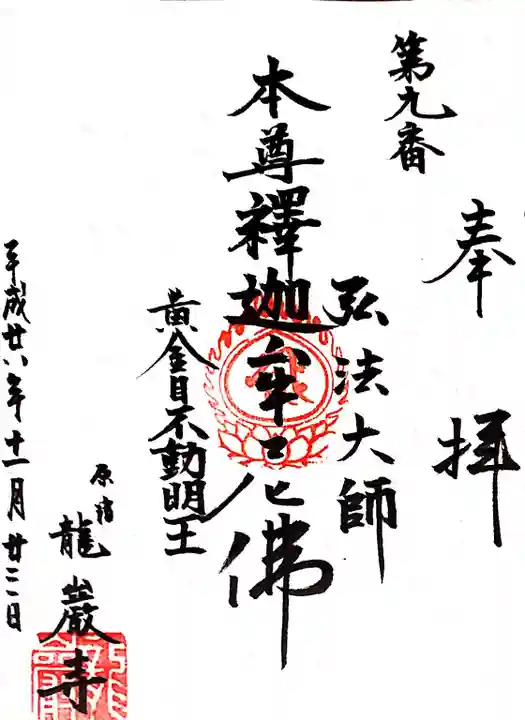 奉拝
第九番
弘法大師
本尊釋迦牟尼佛
黄金目不動明王
原宿
龍巌寺
平成廿六年十一月廿二日